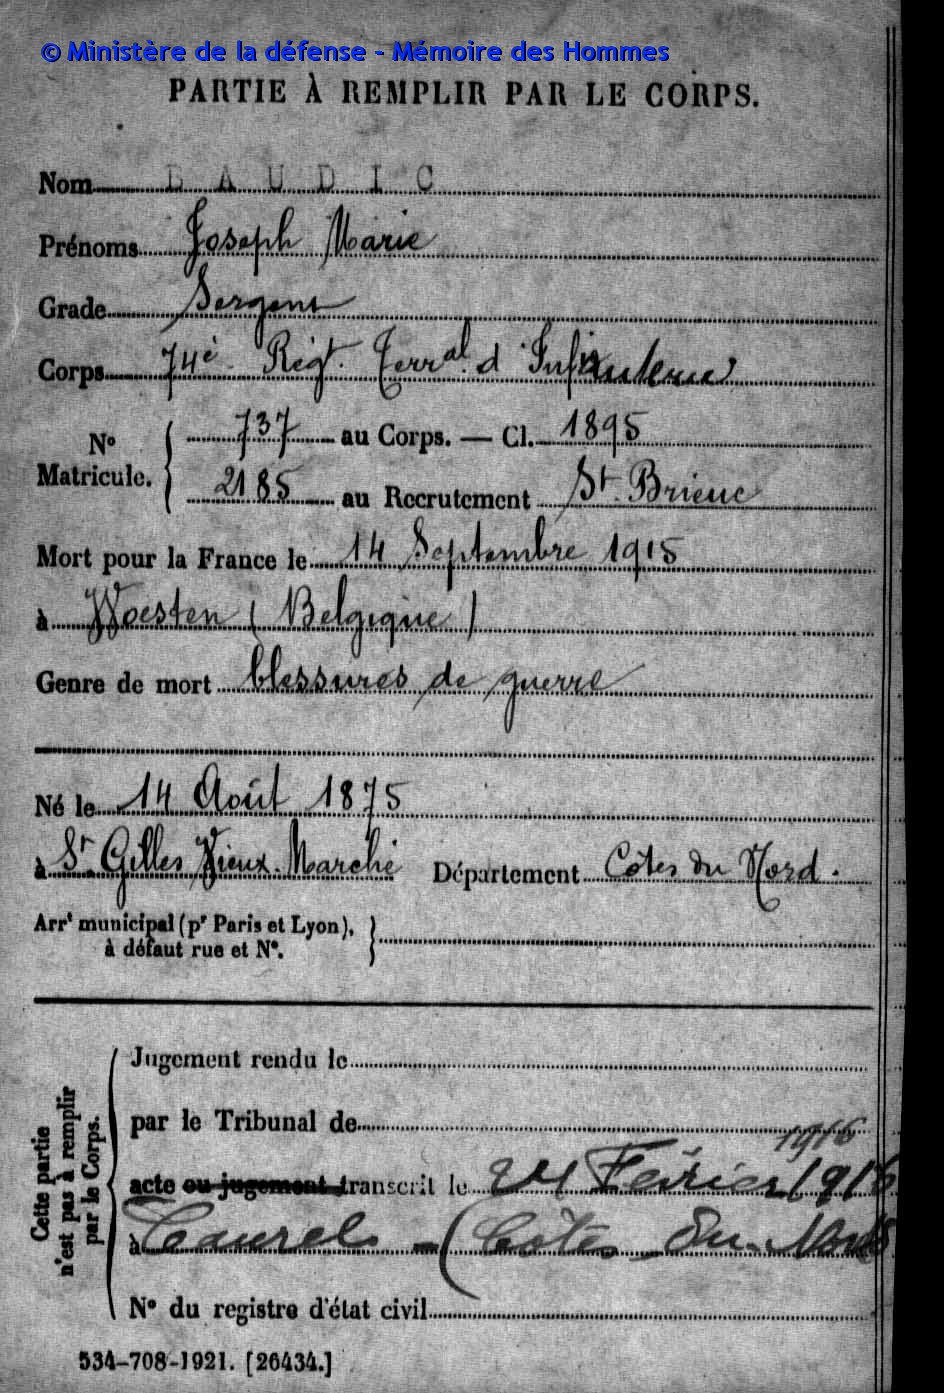 © Ministère de la défense - Mémoire des Hommes
PARTIE À REMPLIR PAR LE CORPS.
Nom BAUDIC
Prénoms Joseph Marie
Grade Sergent
Corps 74è Régt. Terral. d'Infanterie
N° Matricule. 737 au Corps. — Cl. 1895
2185 au Recrutement St. Brieuc
Mort pour la France le 14 Septembre 1915
à Woesten (Belgique)
Genre de mort blessures de guerre
Né le 14 Août 1875
à St. Gilles Vieux-Marché Département Côtes du Nord.
Arrt municipal (pr Paris et Lyon),
à défaut rue et N°.
Cette partie n'est pas à remplir par le Corps.
Jugement rendu le
par le Tribunal de
1916
acte ou jugement transcrit le 24 Février 1916
à Caurel - (Côtes-du-Nord
N° du registre d'état civil
534-708-1921. [26434.]